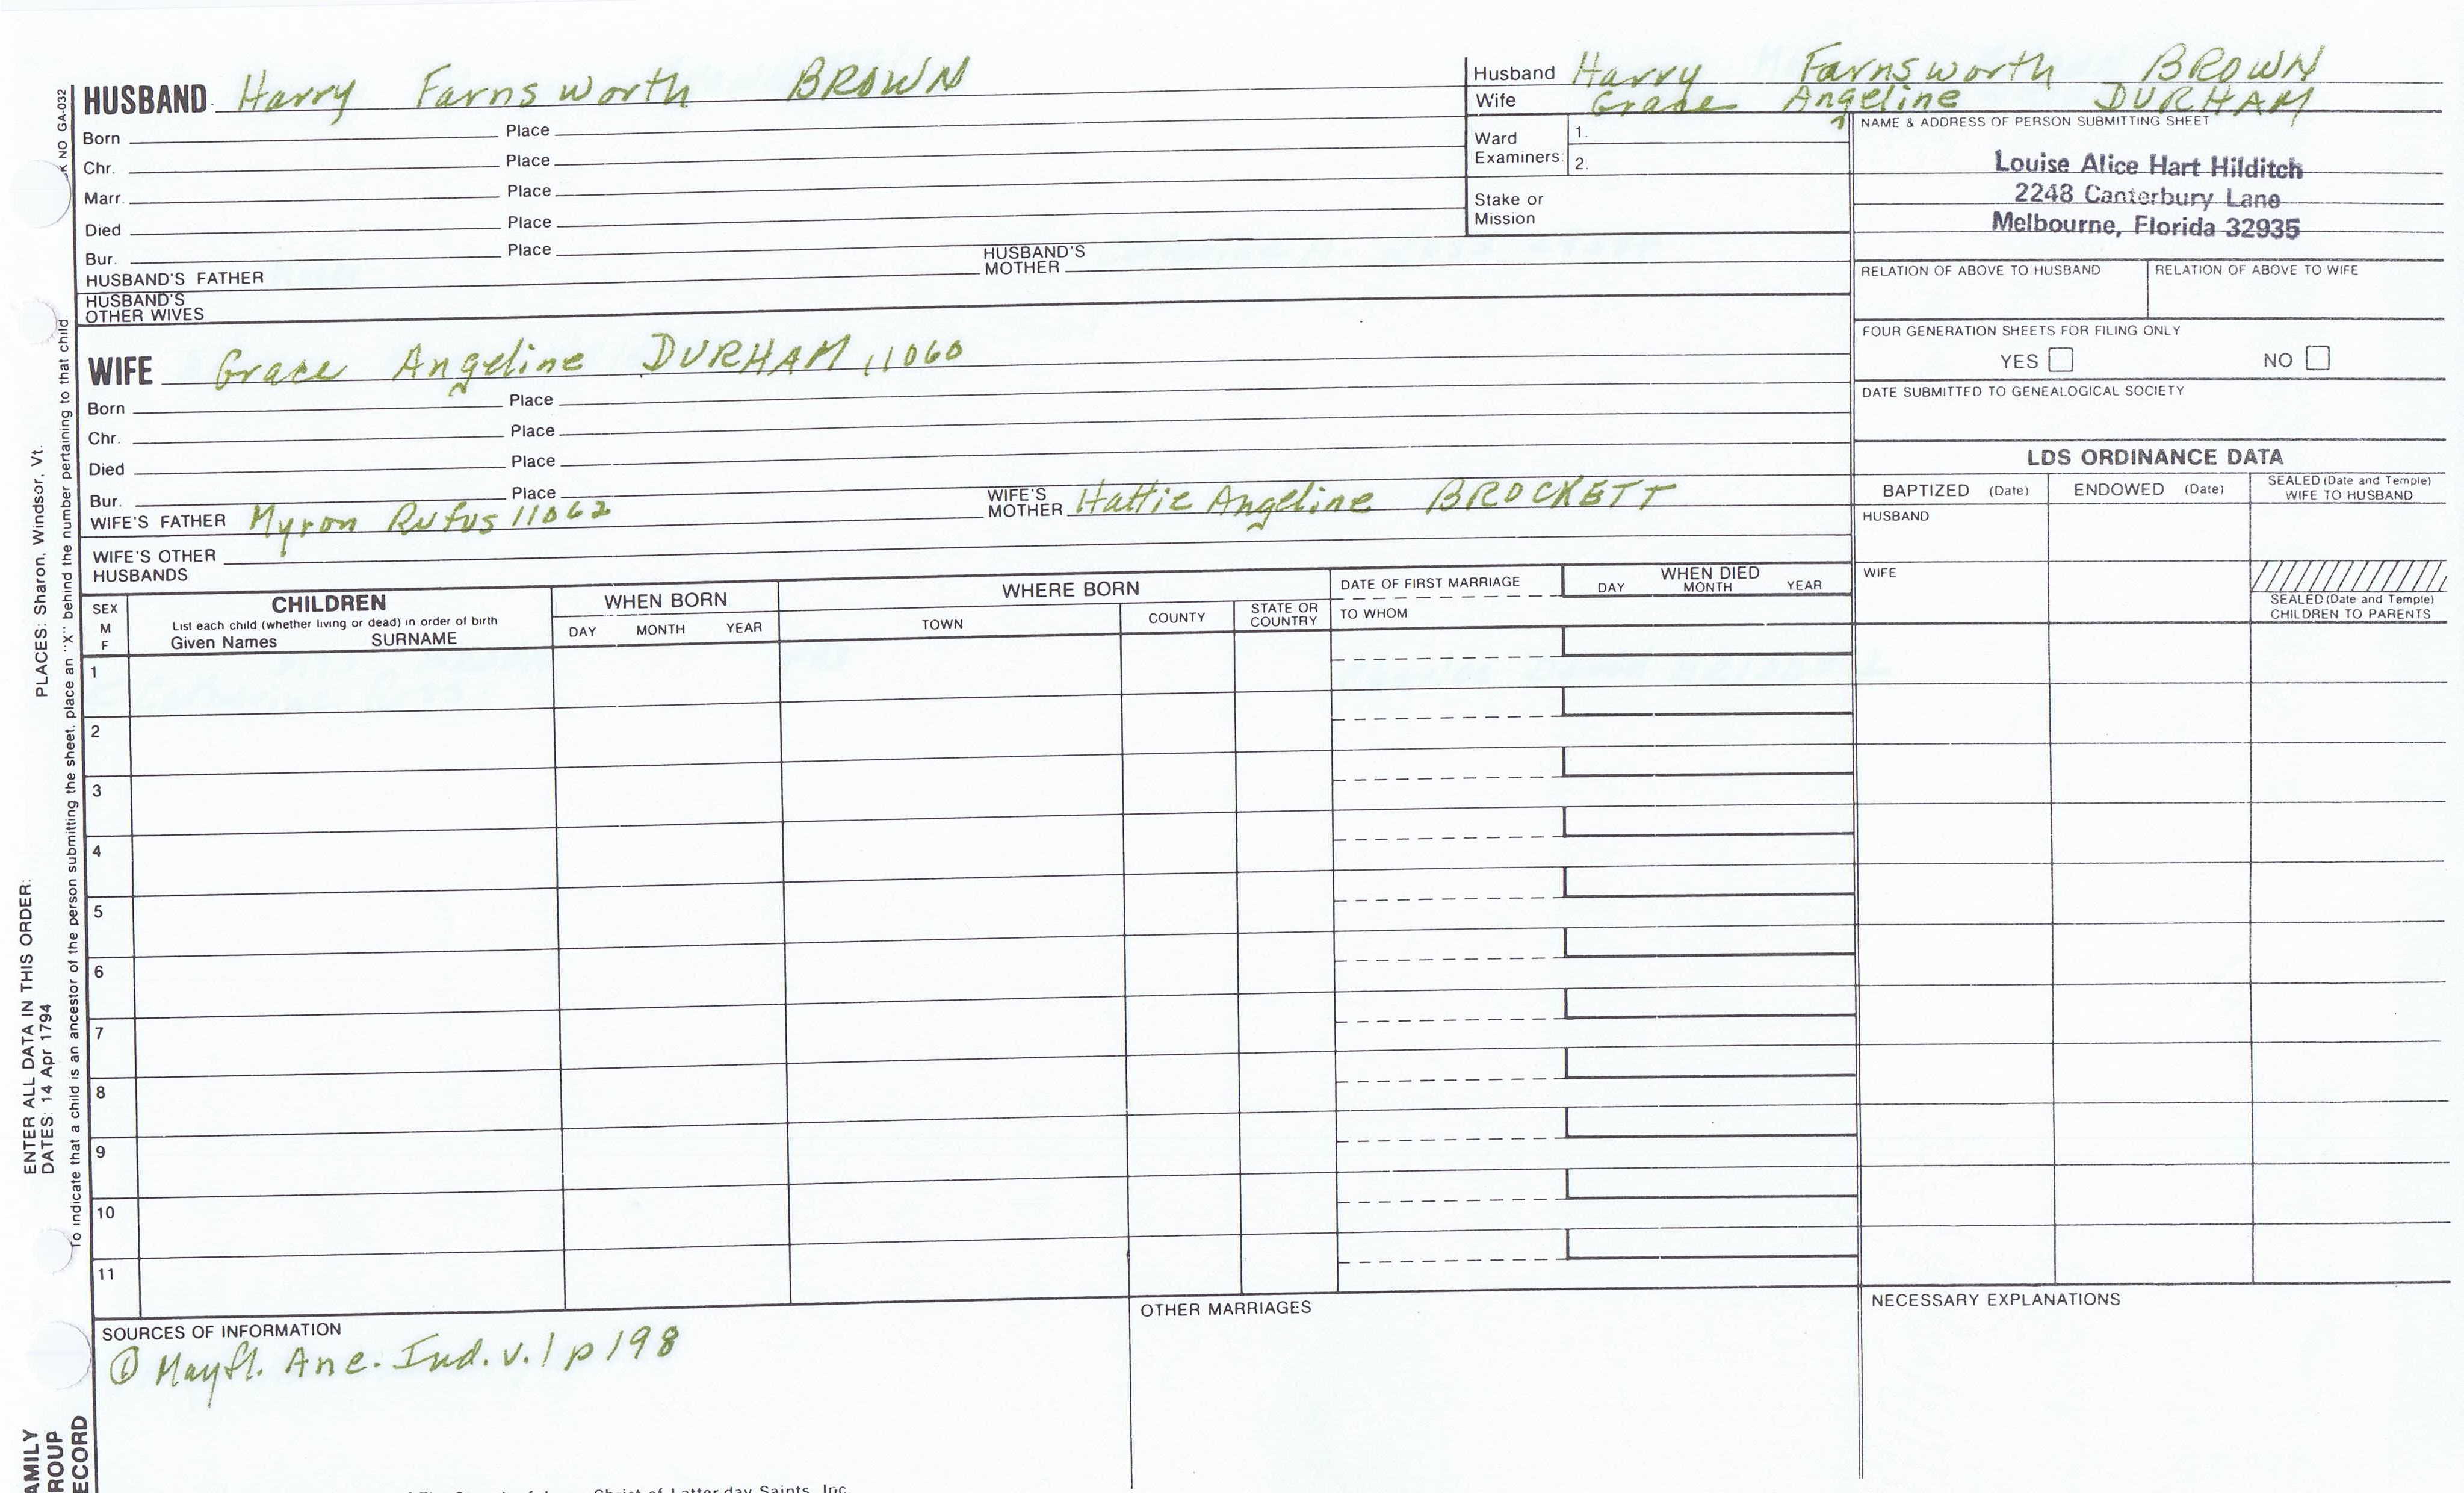 HUSBAND Harry Farnsworth BROWN
Born Place
Chr. Place
Marr. Place
Died Place
Bur. Place
HUSBAND'S FATHER HUSBAND'S MOTHER
HUSBAND'S OTHER WIVES
Husband Harry Farnsworth BROWN
Wife Grace Angeline DURHAM
Ward Examiners: 1.
2.
Stake or Mission
NAME & ADDRESS OF PERSON SUBMITTING SHEET
Louise Alice Hart Hilditch
2248 Canterbury Lane
Melbourne, Florida 32935
RELATION OF ABOVE TO HUSBAND RELATION OF ABOVE TO WIFE
FOUR GENERATION SHEETS FOR FILING ONLY
YES NO
DATE SUBMITTED TO GENEALOGICAL SOCIETY
WIFE Grace Angeline DURHAM 11060
Born Place
Chr. Place
Died Place
Bur. Place
WIFE'S FATHER Myron Rufus 11062 WIFE'S MOTHER Hattie Angeline BROCKETT
WIFE'S OTHER HUSBANDS
LDS ORDINANCE DATA
BAPTIZED (Date) ENDOWED (Date) SEALED (Date and Temple) WIFE TO HUSBAND
HUSBAND
WIFE
SEALED (Date and Temple) CHILDREN TO PARENTS
SEX M F
CHILDREN
List each child (whether living or dead) in order of birth
Given Names SURNAME
WHEN BORN
DAY MONTH YEAR
WHERE BORN
TOWN COUNTY STATE OR COUNTRY
DATE OF FIRST MARRIAGE
TO WHOM
WHEN DIED
DAY MONTH YEAR
1
2
3
4
5
6
7
8
9
10
11
SOURCES OF INFORMATION
① Mayfl. Anc. Ind. v. 1 p 198
OTHER MARRIAGES
NECESSARY EXPLANATIONS
Christ of Latter-day Saints, Inc.
NO GA-032
To indicate that a child is an ancestor of the person submitting the sheet, place an "X" behind the number pertaining to that child
ENTER ALL DATA IN THIS ORDER:
DATES: 14 Apr 1794 PLACES: Sharon, Windsor, Vt.
AMILY
ROUP
ECORD